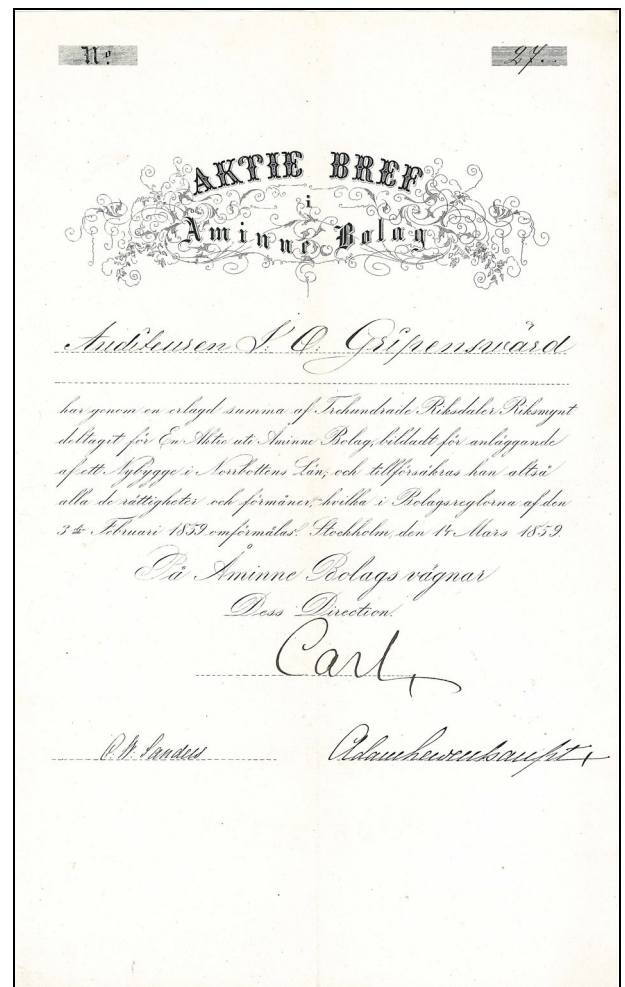 No. 27..
AKTIE BREF
i
Åminne Bolag
Auditeuren S. O. Gripenswärd
har genom en erlagd summa af Trehundrade Riksdaler Riksmynt
deltagit för En Aktie uti Åminne Bolag, bildadt för anläggande
af ett Nybygge i Norrbottens Län; och tillförsäkras han altså
alla de rättigheter och förmåner, hvilka i Bolagsreglorna af den
3de Februari 1859 omförmälas. Stockholm, den 14 Mars 1859.
På Åminne Bolags vägnar
Dess Direction.
Carl
Adam Lewenhaupt